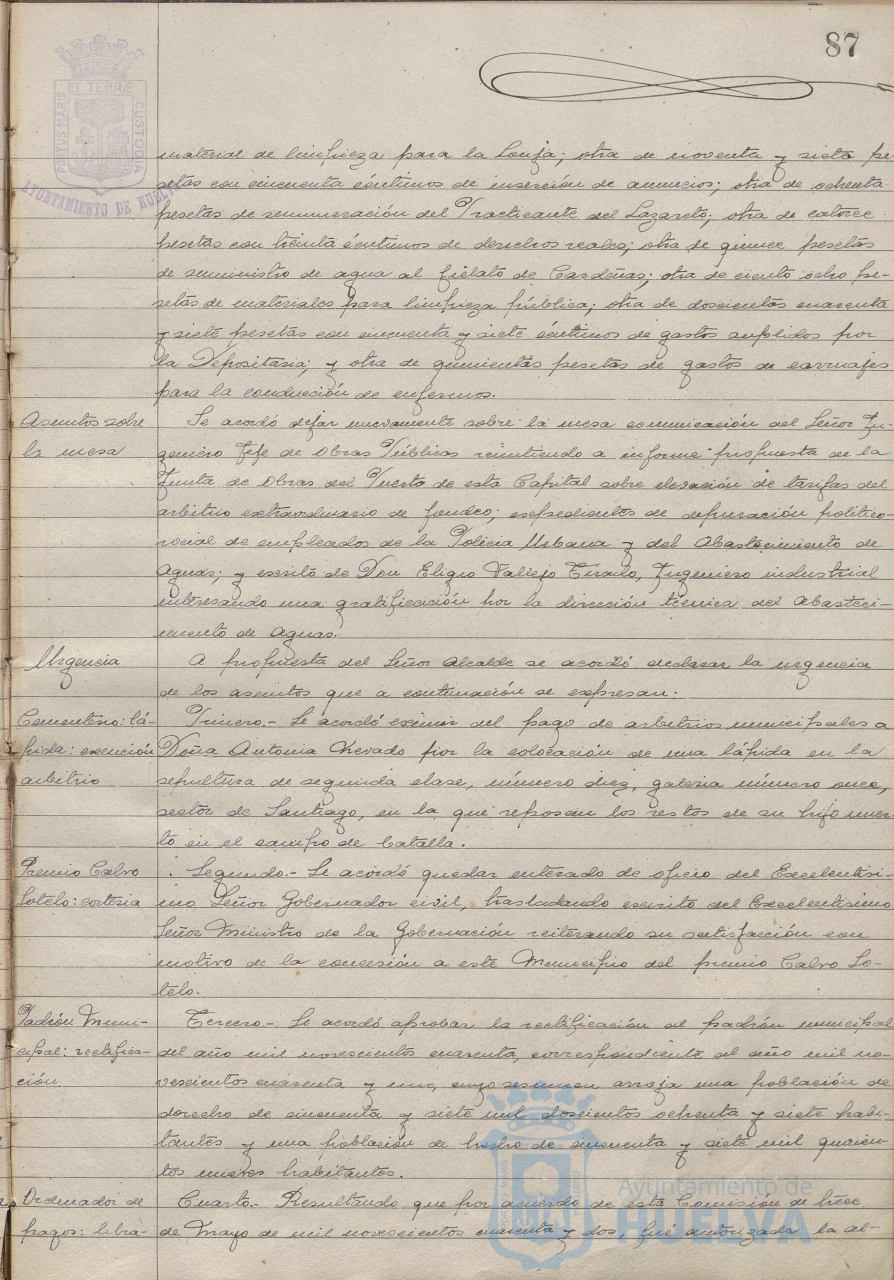 87
PORTUS MARIS ET TERRÆ CUSTODIA
AYUNTAMIENTO DE HUELVA
material de limpieza para la Lonja; otra de noventa y siete pe-
setas con cincuenta céntimos de inserción de anuncios; otra de ochenta
pesetas de remuneración del Practicante del Lazareto; otra de catorce
pesetas con treinta céntimos de derechos reales; otra de quince pesetas
de suministro de agua al fielato de Cardeñas; otra de ciento ocho pe-
setas de materiales para limpieza pública; otra de doscientas cuarenta
y siete pesetas con cincuenta y siete céntimos de gastos suplidos por
la Depositaria; y otra de quinientas pesetas de gastos de carruajes
para la conducción de enfermos.
Asuntos sobre
la mesa
Se acordó dejar nuevamente sobre la mesa comunicación del Señor In-
geniero Jefe de Obras Públicas remitiendo a informe propuesta de la
Junta de Obras del Puerto de esta Capital sobre elevación de tarifas del
arbitrio extraordinario de fondeo; expedientes de depuración político-
social de empleados de la Policia Urbana y del Abastecimiento de
Aguas; y escrito de Don Eligio Vallejo Tirado, Ingeniero industrial
interesando una gratificación por la dirección técnica del Abasteci-
miento de Aguas.
Urgencia
A propuesta del Señor Alcalde se acordó declarar la urgencia
de los asuntos que a continuación se expresan.
Cementerio: lá-
pida: exención
arbitrio
Primero.- Se acordó eximir del pago de arbitrios municipales a
Doña Antonia Nevado por la colocación de una lápida en la
sepultura de segunda clase, número diez, galeria número once,
sector de Santiago, en la que reposan los restos de su hijo muer-
to en el campo de batalla.
Premio Calvo
Sotelo: cortesia
Segundo.- Se acordó quedar enterado de oficio del Excelentisi-
mo Señor Gobernador civil, trasladando escrito del Excelentisimo
Señor Ministro de la Gobernación reiterando su satisfacción con
motivo de la concesión a este Municipio del premio Calvo So-
telo.
Padrón Muni-
cipal: rectifica-
ción.
Tercero.- Se acordó aprobar la rectificación al padrón municipal
del año mil novecientos cuarenta, correspondiente al año mil no-
vecientos cuarenta y uno, cuyo resumen arroja una población de
derecho de cincuenta y siete mil doscientos ochenta y siete habi-
tantes y una población de hecho de cincuenta y siete mil quinien-
tos nueve habitantes.
Ordenador de
pagos: libra-
Cuarto.- Resultando que por acuerdo de esta Comisión de trece
de Mayo de mil novecientos cuarenta y dos, fué autorizada la al-
Ayuntamiento de
HUELVA